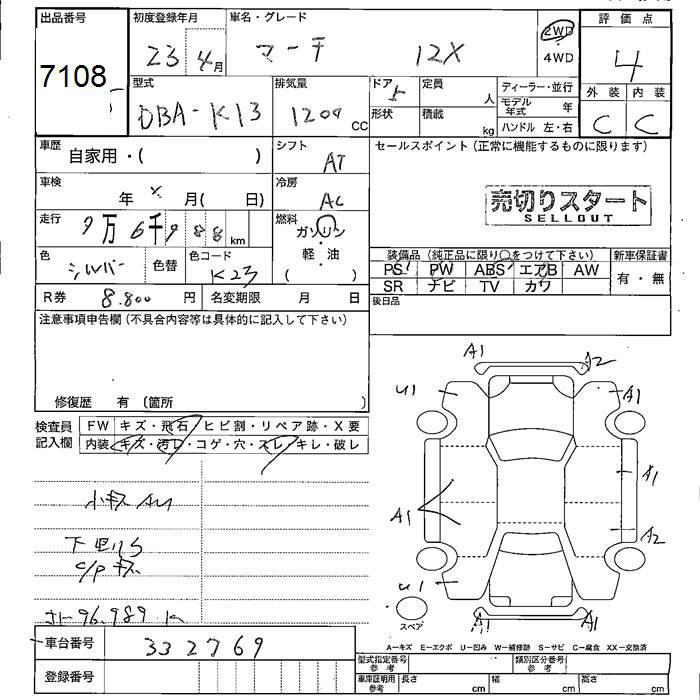 出品番号 初度登録年月 車名・グレード 2WD 4WD 評価点
7108 23年4月 マーチ 12X 4
型式 排気量 ドア 定員 ディーラー・並行 外装 内装
DBA-K13 1200 cc 5 人 モデル年式 年 C C
形状 積載 kg ハンドル 左・右
車歴 自家用・( ) シフト AT セールスポイント(正常に機能するものに限ります)
車検 年 × 月( 日) 冷房 AC 売切りスタート
SELLOUT
走行 9万6千988km 燃料 ガソリン・軽・油 ( )
色 シルバー 色替 色コード K23
装備品(純正品に限り○をつけて下さい) 新車保証書
PS PW ABS エアB AW 有・無
SR ナビ TV カワ
R券 8.800円 名変期限 月 日 後日品
注意事項申告欄(不具合内容等は具体的に記入して下さい)
修復歴 有 (箇所 )
検査員記入欄 FW キズ・飛石・ヒビ割・リペア跡・X要
内装 キズ・汚レ・コゲ・穴・スレ・キレ・破レ
小キズ AU
下回りS
C/Pキズ
96.989 K
A1 A2
U1 A1
A1 A1
A2
U1
A1 A1
スペア
車台番号 332769
登録番号
A-キズ E-エクボ U-凹み W-補修跡 S-サビ C-腐食 XX-交換済
型式指定番号 参考 類別区分番号 参考
車庫証明用 参考 長さ cm 幅 cm 高さ cm